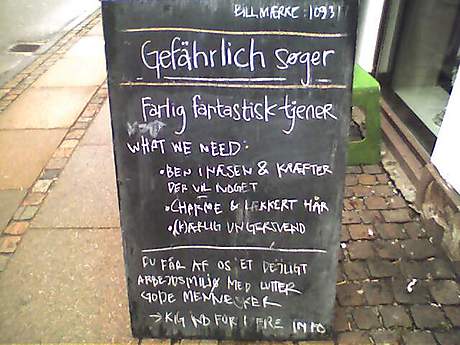 BILLMÆRKE: 10931
Gefährlich søger
Farlig fantastisk tjener
WHAT WE NEED:
• BEN I NÆSEN & KRÆFTER
DER VIL NOGET
• CHARME & LÆKKERT HÅR
• (K)ÆRLIG UNGERSVEND
DU FÅR AF OS ET DEJLIGT
ARBEJDSMILJØ MED LUTTER
GODE MENNESKER
→ KIG IND FOR